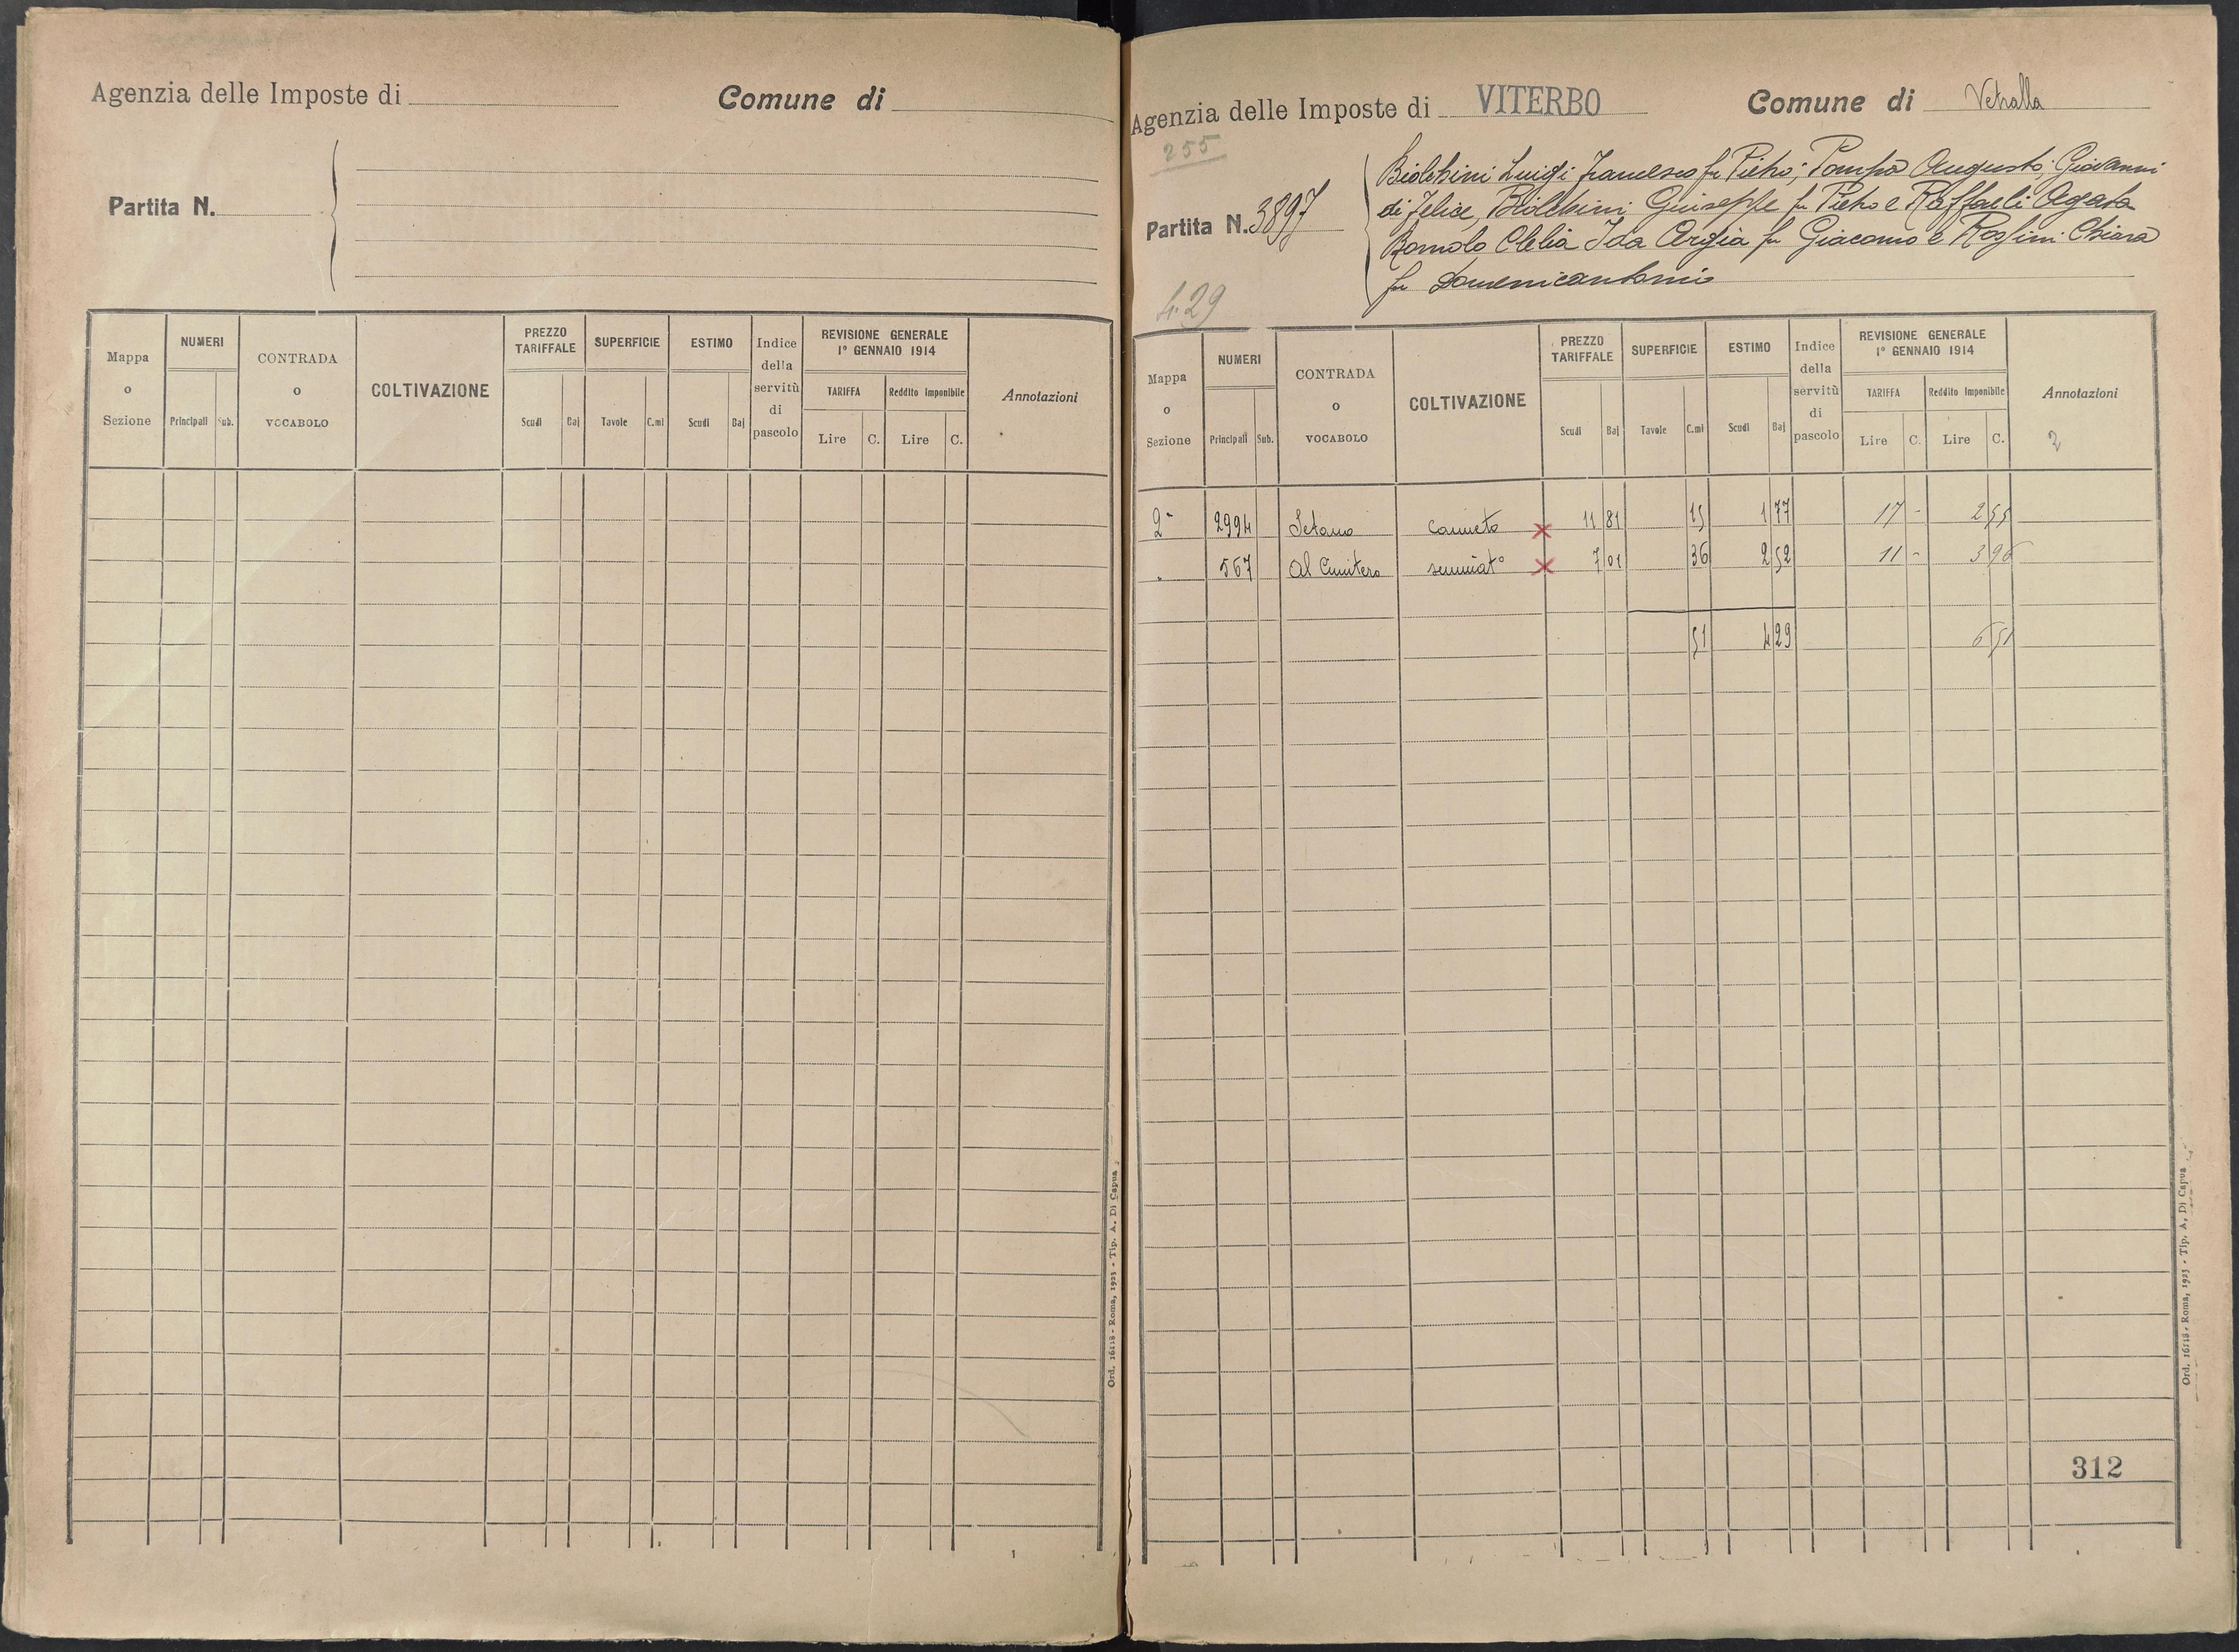 Agenzia delle Imposte di
Comune di
Partita N.
Mappa o Sezione
NUMERI
Principali Sub.
CONTRADA o VOCABOLO
COLTIVAZIONE
PREZZO TARIFFALE
Scudi Baj
SUPERFICIE
Tavole C.mi
ESTIMO
Scudi Baj
Indice della servitù di pascolo
REVISIONE GENERALE
1° GENNAIO 1914
TARIFFA Reddito Imponibile
Lire C. Lire C.
Annotazioni
Ord. 16118 - Roma, 1923 - Tip. A. Di Capua
Agenzia delle Imposte di VITERBO
Comune di Vetralla
255
Partita N. 3897
Biolchini Luigi Francesco fu Pietro; Pompa Augusto; Giovanni
di Felice, Biolchini Giuseppe fu Pietro e Raffaeli Agata
Romolo Clelia Ida Argia fu Giacomo e Rossini Chiara
fu Domenicantonio
4.29
Mappa o Sezione
NUMERI
Principali Sub.
CONTRADA o VOCABOLO
COLTIVAZIONE
PREZZO TARIFFALE
Scudi Baj
SUPERFICIE
Tavole C.mi
ESTIMO
Scudi Baj
Indice della servitù di pascolo
REVISIONE GENERALE
1° GENNAIO 1914
TARIFFA Reddito Imponibile
Lire C. Lire C.
Annotazioni
2
2a 2994 canneto x 11 81 15 1 77 17 - 2 55
" 567 Al Cimitero seminato x 7 01 36 2 52 11 - 3 96
51 4 29 6 51
312
Ord. 16118 - Roma, 1923 - Tip. A. Di Capua